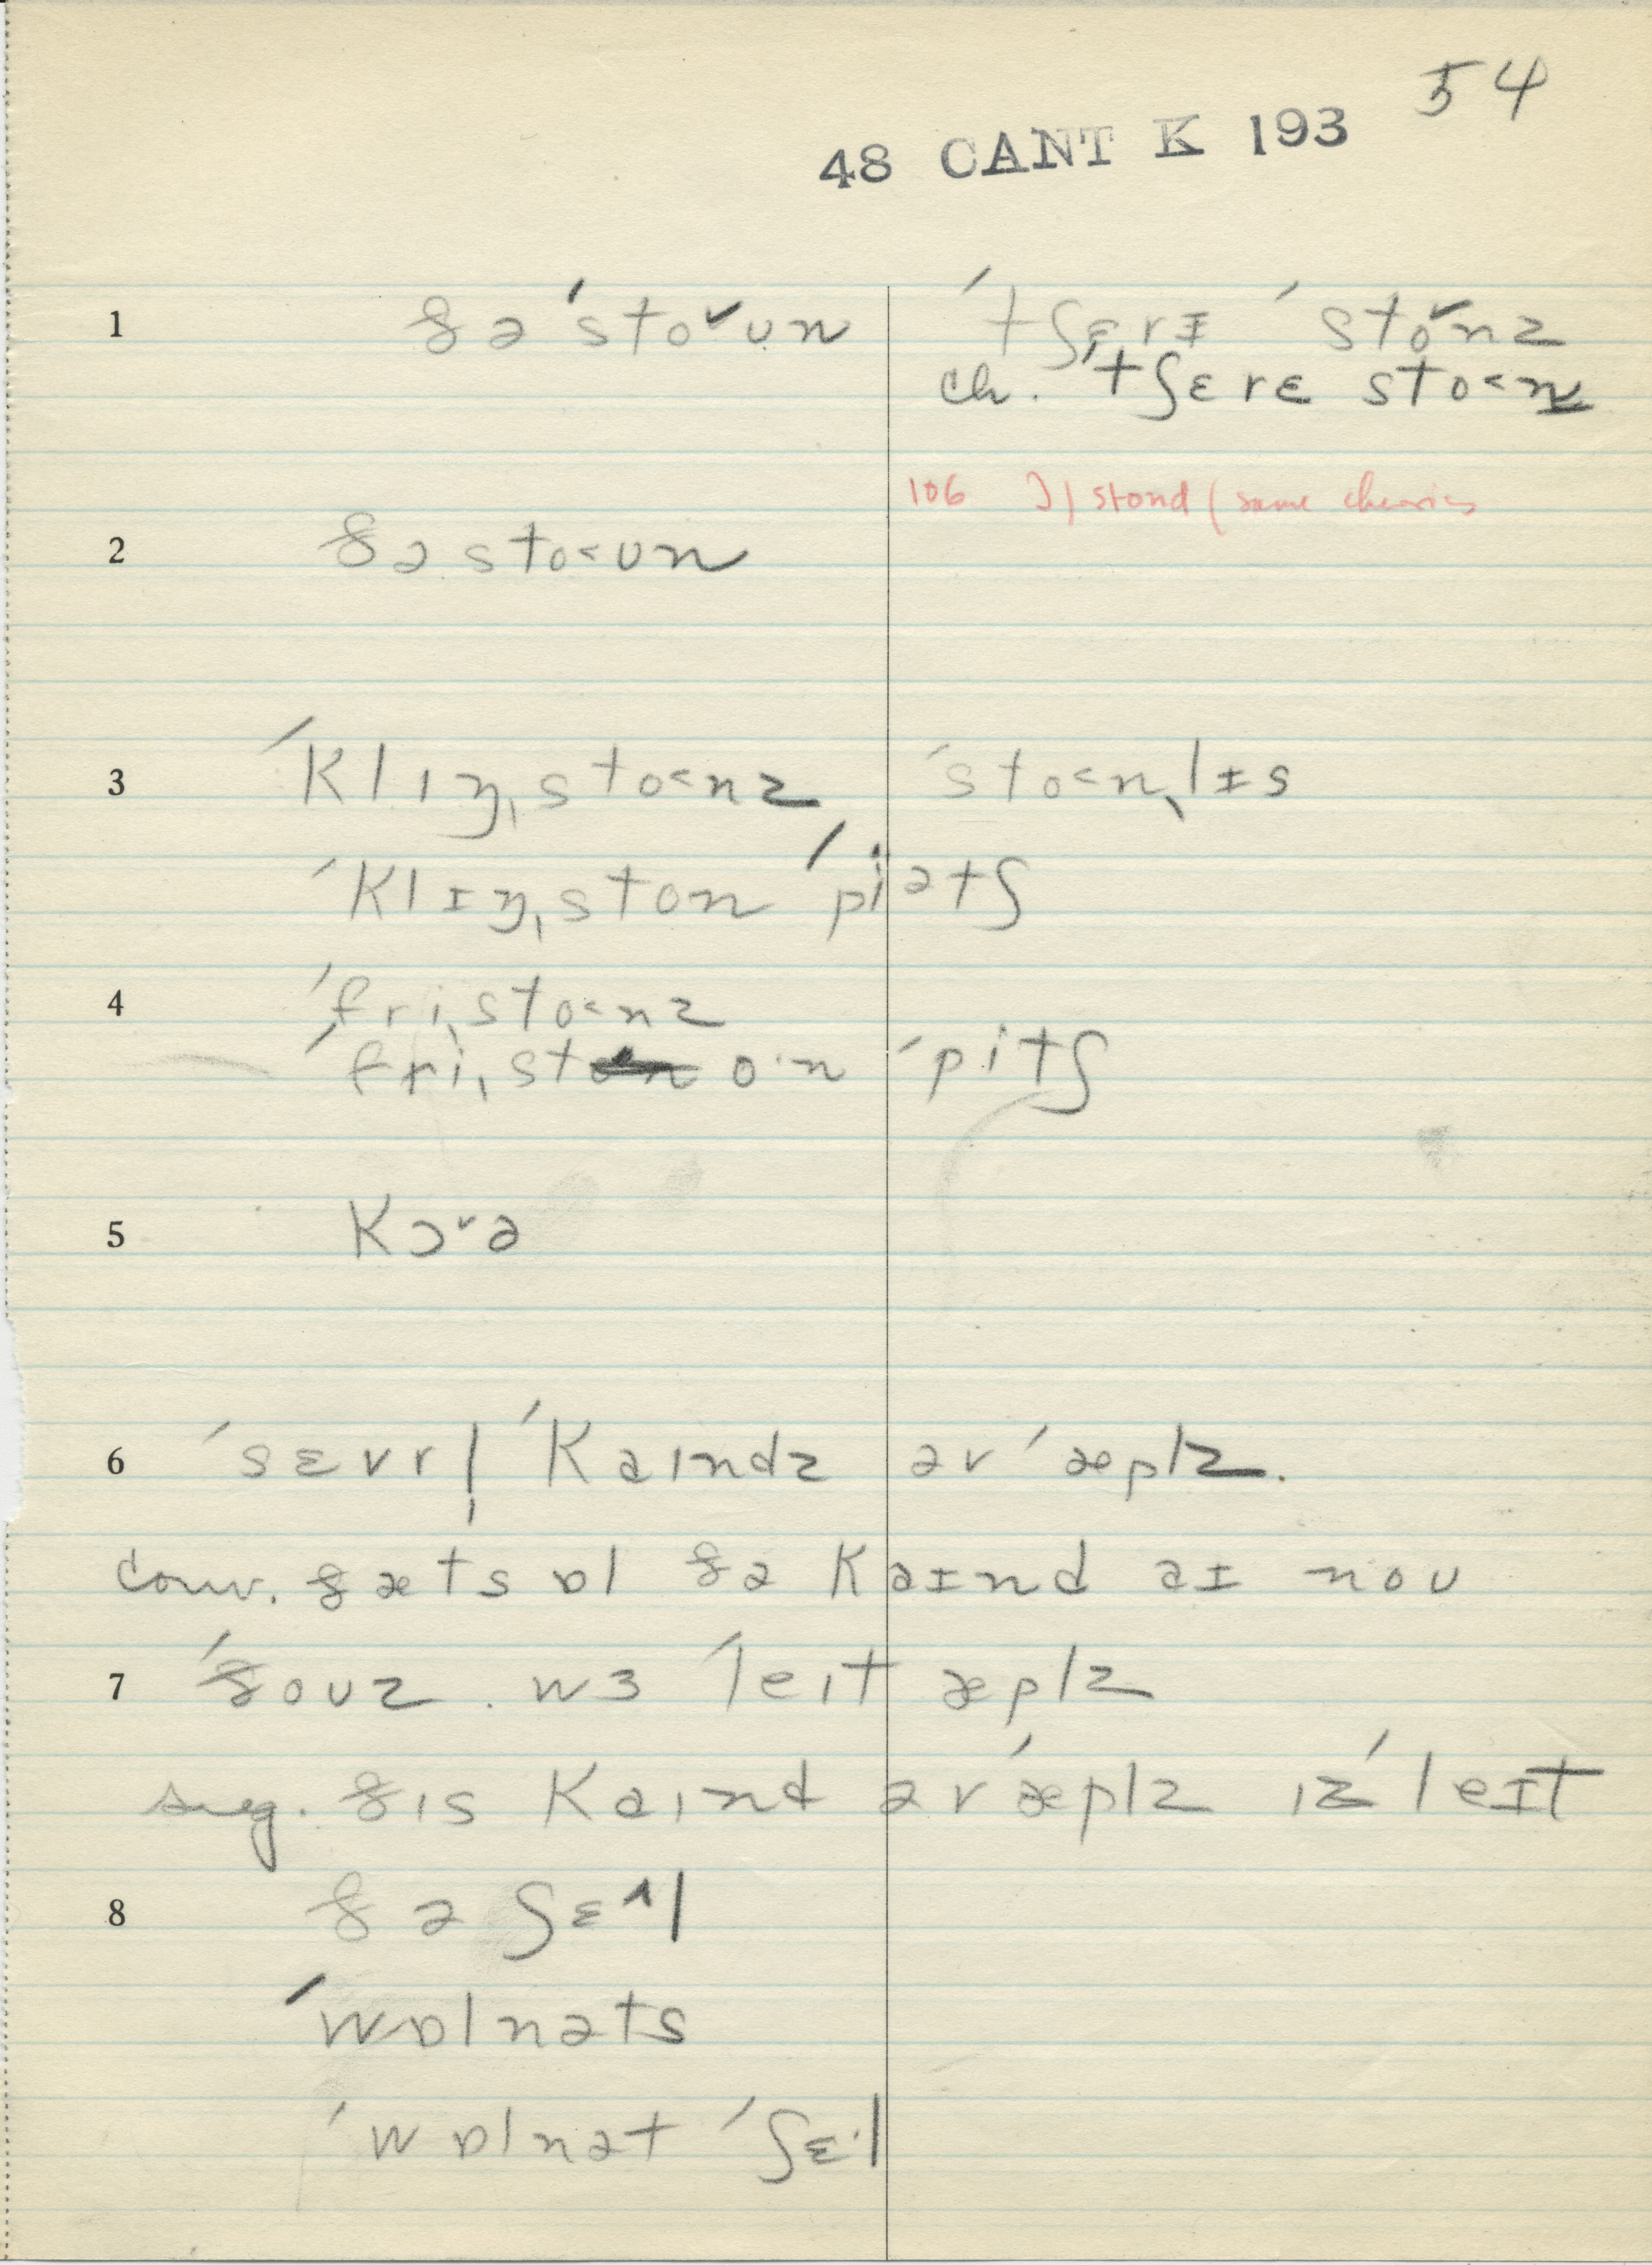 54
48 CANT K 193
1 ðə ˈstoˇʊn ˈtʃɛrɪ ˈstoˇnz
ch. ˈtʃɛrɛ sto˂nz
106 ) stond ( same cherries
2 ðə sto˂ʊn
3 ˈklɪŋˌsto˂nz ˈsto˂nˌlɪs
ˈklɪŋˌston ˈpiətʃ
4 ˈfriˌsto˂nz
ˈfriˌst o·n ˈpitʃ
5 kɔˇə
6 ˈsɛvrl̩ ˈkaɪndz əv ˈæplz.
conv. ðæts ɒl ðə kaɪnd aɪ noʊ
7 ˈðoʊz . wɜ ˈleɪt æplz
sug. ðɪs kaɪnd əv ˈæplz ɪz ˈleɪt
8 ðə ʃɛ^l
ˈwɒlnəts
ˈwɒlnət ˈʃɛ·l